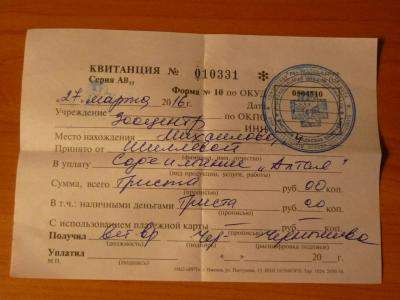 КВИТАНЦИЯ № 010331 ✻
Серия АВ
Форма № 10 по ОКУД 0504510
"27" марта 2016 г. Дата
Учреждение Зооцентр по ОКПО
ИНН
Место нахождения
Принято от Шиллевой
(фамилия, имя, отчество)
В уплату Содействие "Алтая"
(вид продукции, услуги, работы)
Сумма, всего триста руб. 00 коп.
(прописью)
В т.ч.: наличными деньгами триста руб. 00 коп.
(прописью)
С использованием платежной карты — руб. — коп.
(прописью)
Получил вет. вр
(должность) (подпись) (расшифровка подписи)
Уплатил " " 20 г.
М.П. (подпись)